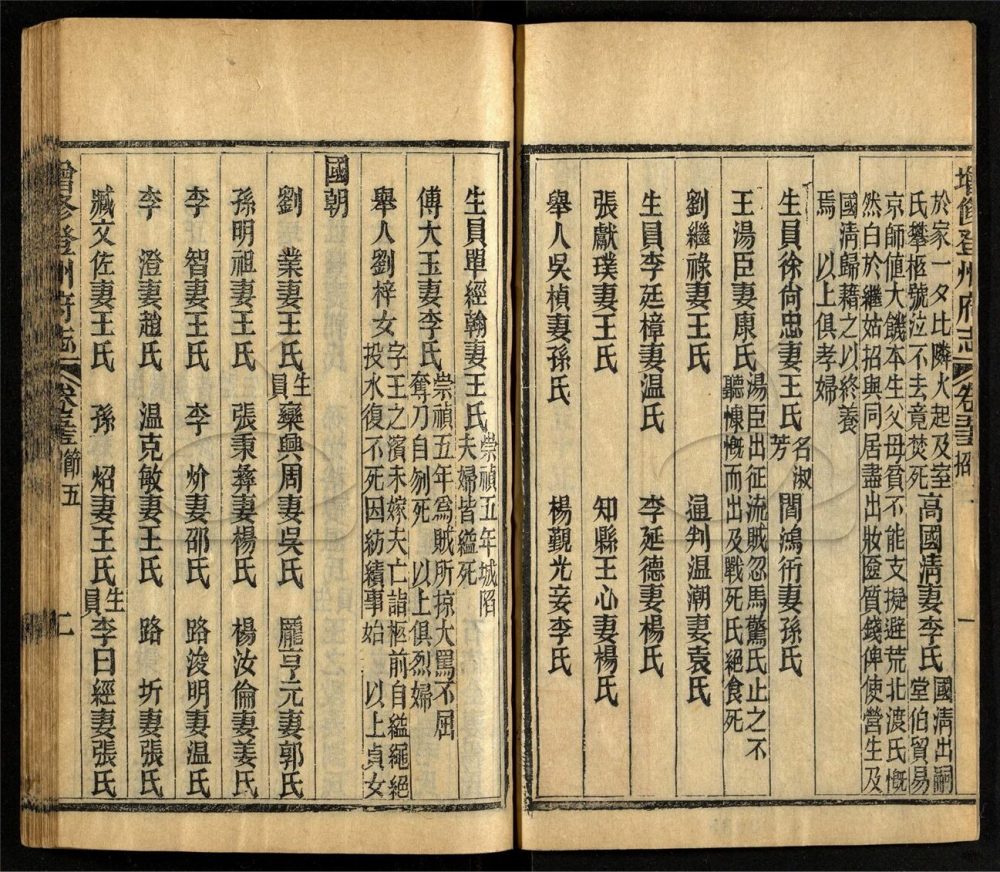 增修登州府志 卷五十五 招 一
於家一夕比隣火起及室
氏攀柩號泣不去竟焚死 高國淸妻李氏 國淸出嗣堂伯貿易
京師値大饑本生父母貧不能支擬避荒北渡氏慨
然白於繼姑招與同居盡出妝匳質錢俾使營生及
國淸歸藉之以終養
焉 以上俱孝婦
生員徐尙忠妻王氏 名淑芳 閻鴻衍妻孫氏
王湯臣妻康氏 湯臣出征流賊忍馬驚氏止之不
聽慷慨而出及戰死氏絕食死
劉繼祿妻王氏 通判温潮妻袁氏
生員李廷樟妻温氏 李延德妻楊氏
張獻璞妻王氏 知縣王心妻楊氏
舉人吳楨妻孫氏 楊觀光妾李氏
生員單經翰妻王氏 崇禎五年城陷
夫婦皆縊死
傅大玉妻李氏 崇禎五年爲賊所掠大罵不屈
奪刀自刎死 以上俱烈婦
舉人劉梓女 字王之濱未嫁夫亡詣柩前自縊繩絕
投水復不死因紡績事始 以上貞女
國朝
劉業妻王氏 生員欒興周妻吳氏 龎亨元妻郭氏
孫明祖妻王氏 張秉彝妻楊氏 楊汝倫妻姜氏
李智妻王氏 李妻邵氏 路浚明妻温氏
李澄妻趙氏 温克敏妻王氏 路圻妻張氏
臧文佐妻王氏 孫炤妻王氏 生員李曰經妻張氏
增修登州府志 卷五十五 節五 二